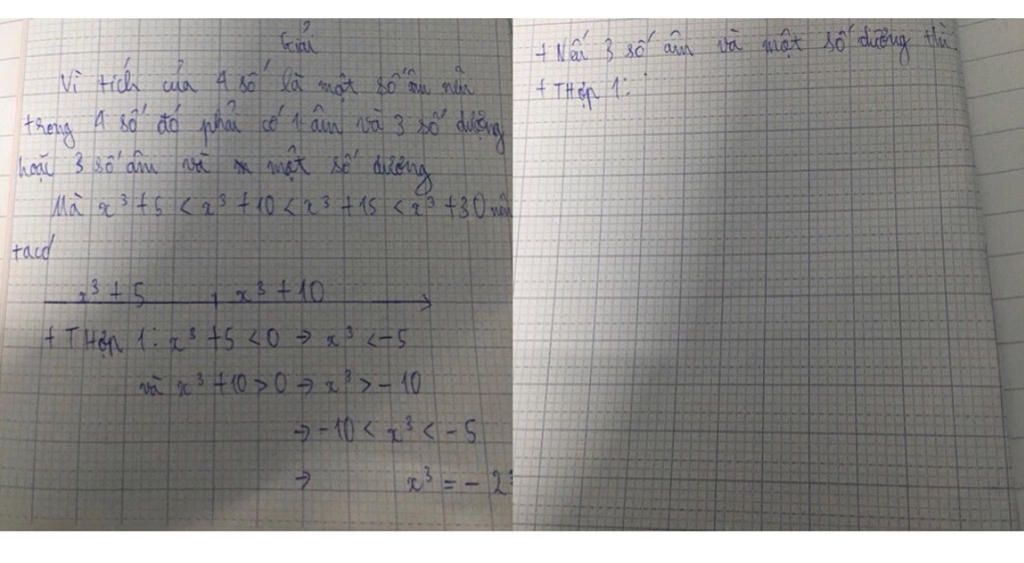 Giải
Vì tích của 4 số là một số âm nên
trong 4 số đó phải có 1 âm và 3 số dương
hoặc 3 số âm và một số dương
Mà x³ + 5 < x³ + 10 < x³ + 15 < x³ + 30 nên
tacó
x³ + 5 x³ + 10
+ THợp 1: x³ + 5 < 0 → x³ < -5
và x³ + 10 > 0 → x³ > -10
→ -10 < x³ < -5
→ x³ = -2³
+ Nếu 3 số âm và một số dương thì
+ THợp 1: